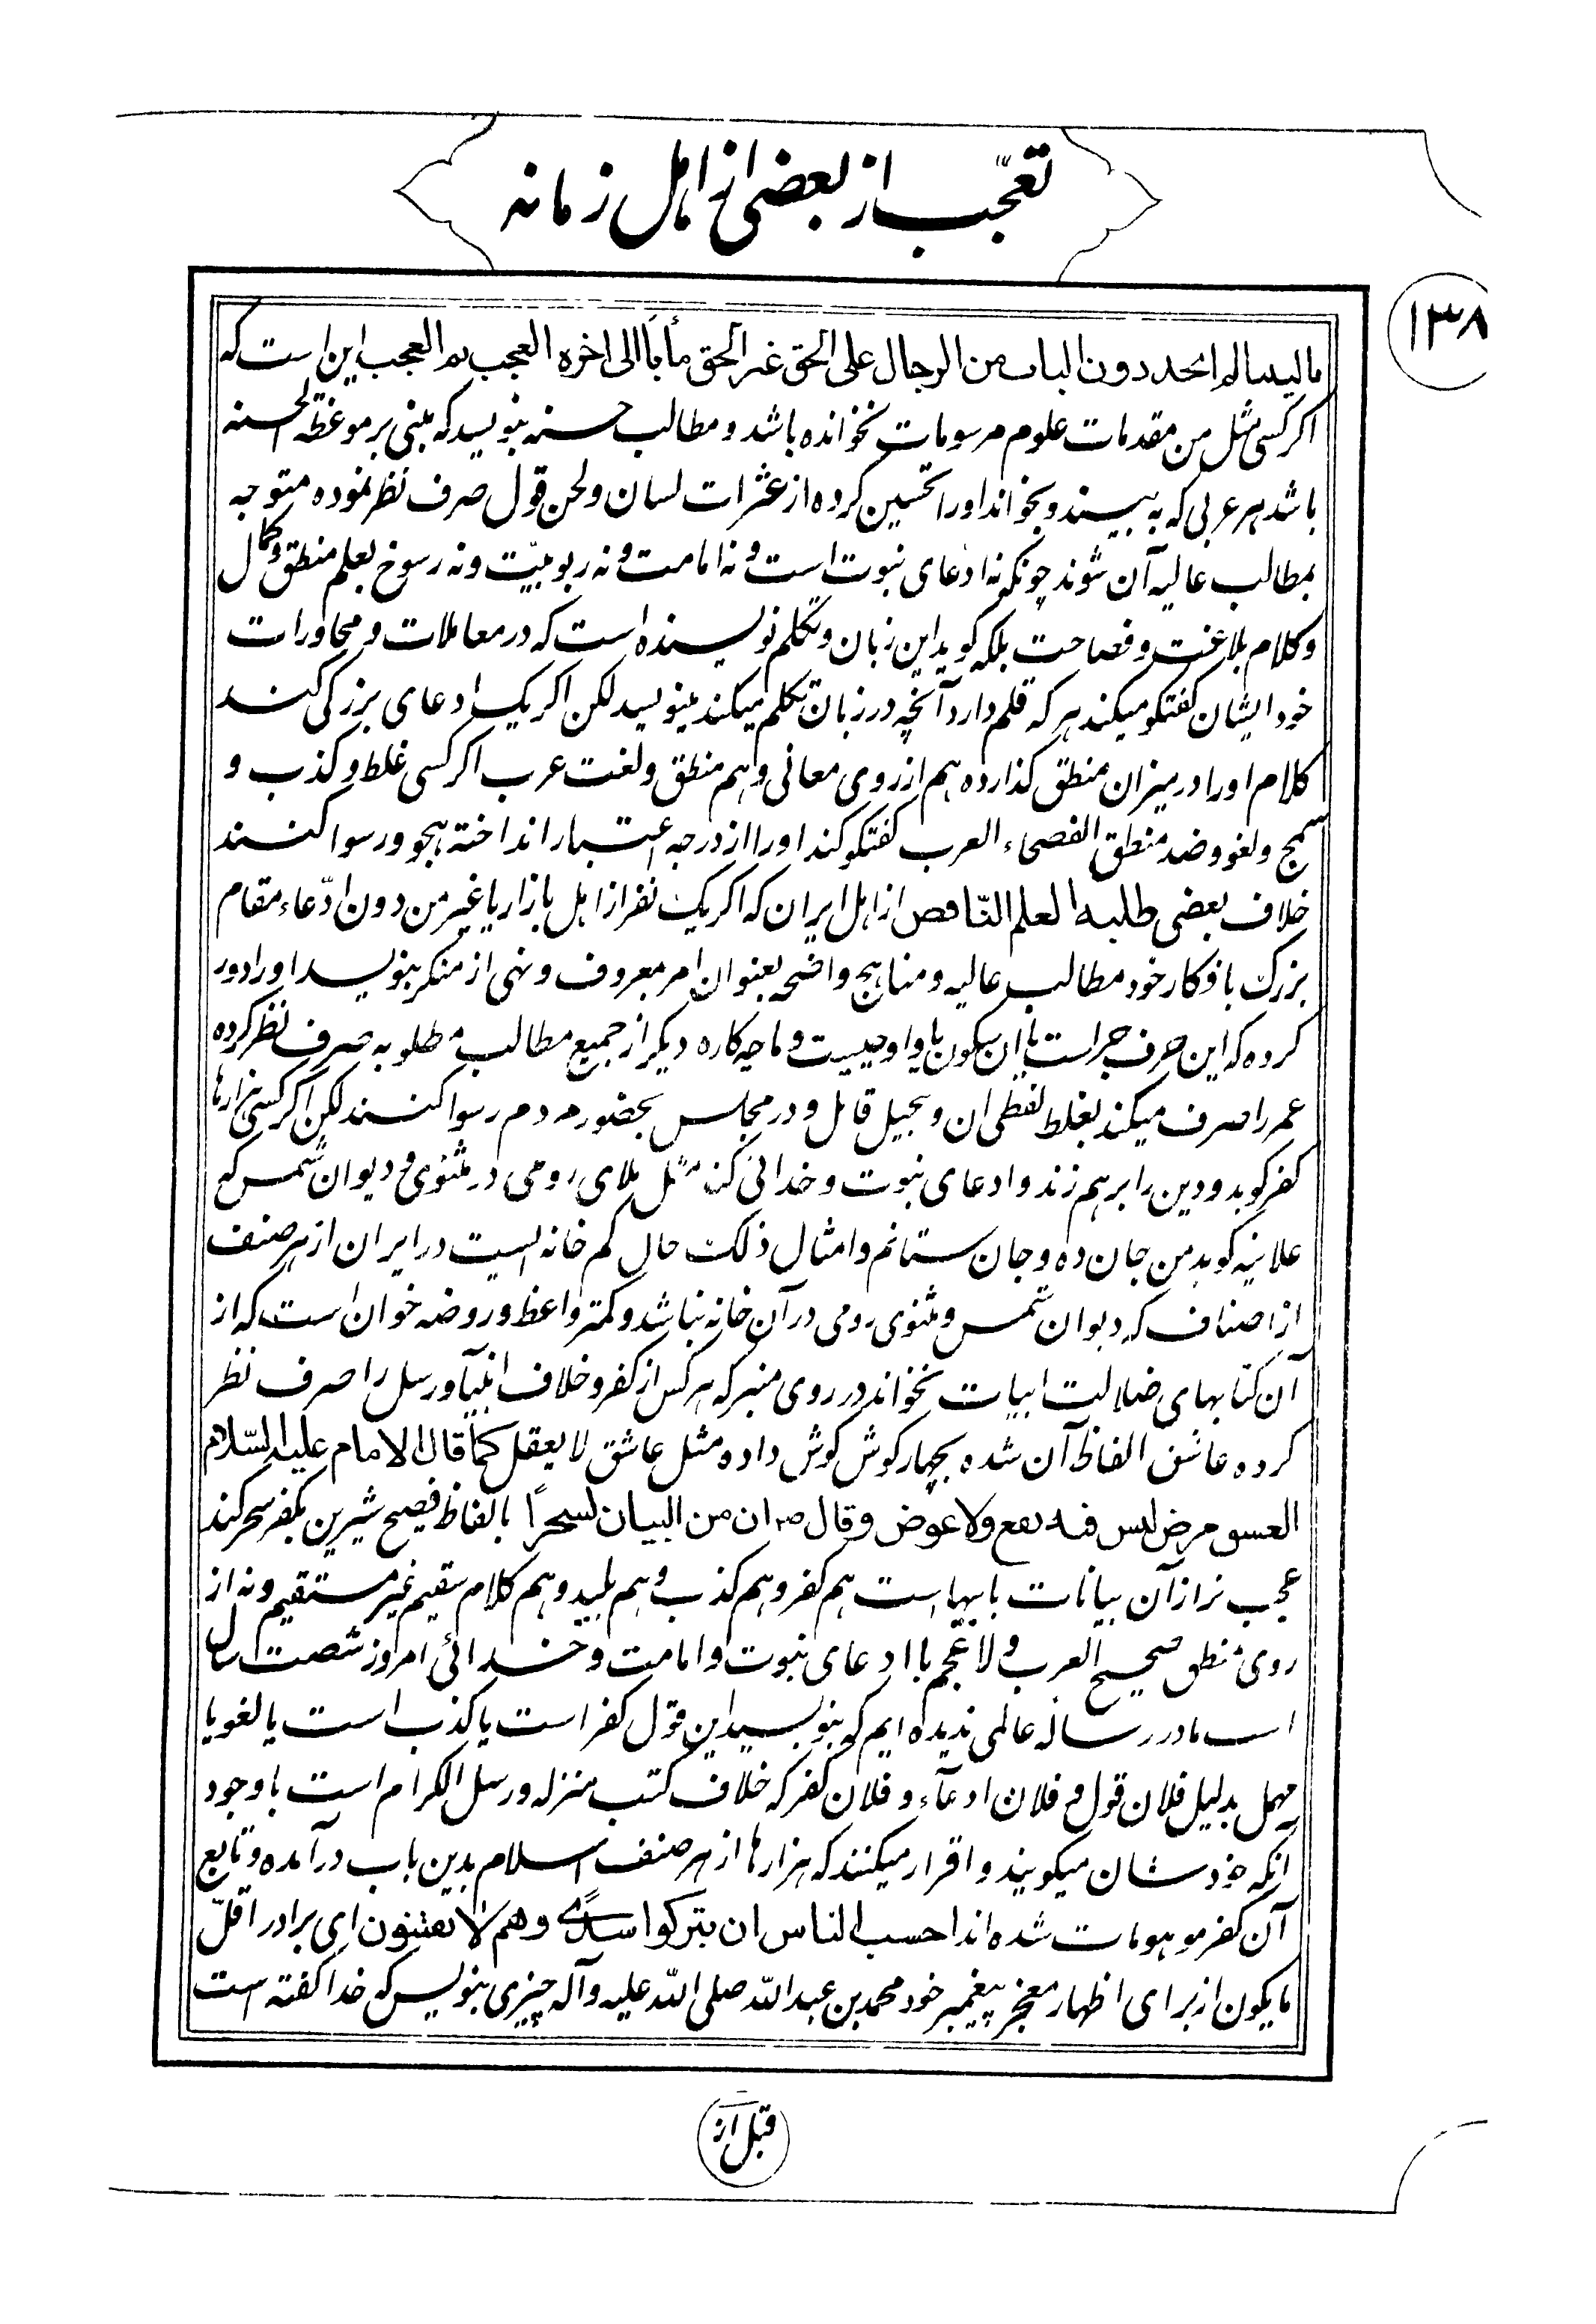 تعجّب از بعضی از اهل زمانه
۱۳۸
یا لیتنا لم نتخذ دون الباب من الرجال علی الحق غیر الحق مأباً الی اخره العجب ثم العجب این است که
اکر کسی مثل من مقدمات علوم مرسومات نخوانده باشد و مطالب حسنه بنویسد که مبنی بر موعظة الحسنه
باشد هر عربی که به بیند و بخواند او را تحسین کرده از عثرات لسان و لحن قول صرف نظر نموده متوجه
بمطالب عالیه آن شوند چونکه نه ادعای نبوت است و نه امامت و نه ربوبیّت و نه رسوخ بعلم منطق و کمال
و کلام بلاغت و فصاحت بلکه کوید این زبان و تکلم نویسنده است که در معاملات و محاورات
خود ایشان کفتکو میکند هر که قلم دارد آنچه در زبان تکلم میکند مینویسد لکن اکر یک ادعای بزرکی کند
کلام او را در میزان منطق کذارده هم از روی معانی و هم منطق ولغت عرب اکر کسی غلط و کذب و
سمج و لغو و ضد منطق الفصحاء العرب کفتکو کند او را از درجه اعتبار انداخته هجو و رسوا کنند
خلاف بعضی طلبه العلم النّاقص از اهل ایران که اکر یک نفر از اهل بازار یا غیر من دون ادّعاء مقام
بزرک بافکار خود مطالب عالیه و مناهج واضحه بعنوان امر معروف و نهی از منکر بنویسد او را دور
کرده که این حرف جر است یا آن سکون یا واو چیست و ما چه کاره دیکر از جمیع مطالب مطلوبه صرف نظر کرده
عمر را صرف میکند بغلط لفظی ان و تجیل قائل و در مجالس بحضور مردم رسوا کنند لکن اکر کسی هزارها
کفر کوید و دین را برهم زند و ادعای نبوت و خدائی کند مثل ملای رومی در مثنوی و دیوان شمس که
علانیه کوید من جان ده و جان ستانم و امثال ذلک حال کم خانه ایست در ایران از هر صنف
از اصناف که دیوان شمس و مثنوی رومی در آن خانه نباشد و کمتر واعظ و روضه خوان است که از
آن کتابهای ضلالیت ابیات نخواند در روی منبر که هر کس از کفر و خلاف انبیآ و رسل را صرف نظر
کرده عاشق الفاظ آن شده بچهار کوش کوش داده مثل عاشق لا یعقل کما قال الامام علیه السّلام
العشق مرض لیس فیه نفع ولا عوض و قال ص ان من البیان لسحراً با لفاظ فصیح شیرین بکفر سحر کند
عجب تر از آن بیانات بابیها است هم کفر و هم کذب و هم پلید و هم کلام سقیم غیر مستقیم و نه از
روی منطق صحیح العرب و لا عجم با ادعای نبوت و امامت و خدائی امروز شصت سال
است مادر رساله عالمی ندیده ایم که بنویسد این قول کفر است یا کذب است یا لغو یا
مهمل بدلیل فلان قول و فلان ادعآء و فلان کفر که خلاف کتب منزله و رسل الکرام است با وجود
آنکه خودشان میکویند و اقرار میکنند که هزارها از هر صنف اسلام بدین باب درآمده و تابع
آن کفر موهومات شده اند احسب الناس ان یترکوا سدًی و هم لا یفتنون ای برادر اقلّ
ما یکون از برای اظهار معجز پیغمبر خود محمد بن عبدالله صلی الله علیه و آله چیزی بنویس که خدا کفته است
قبل از